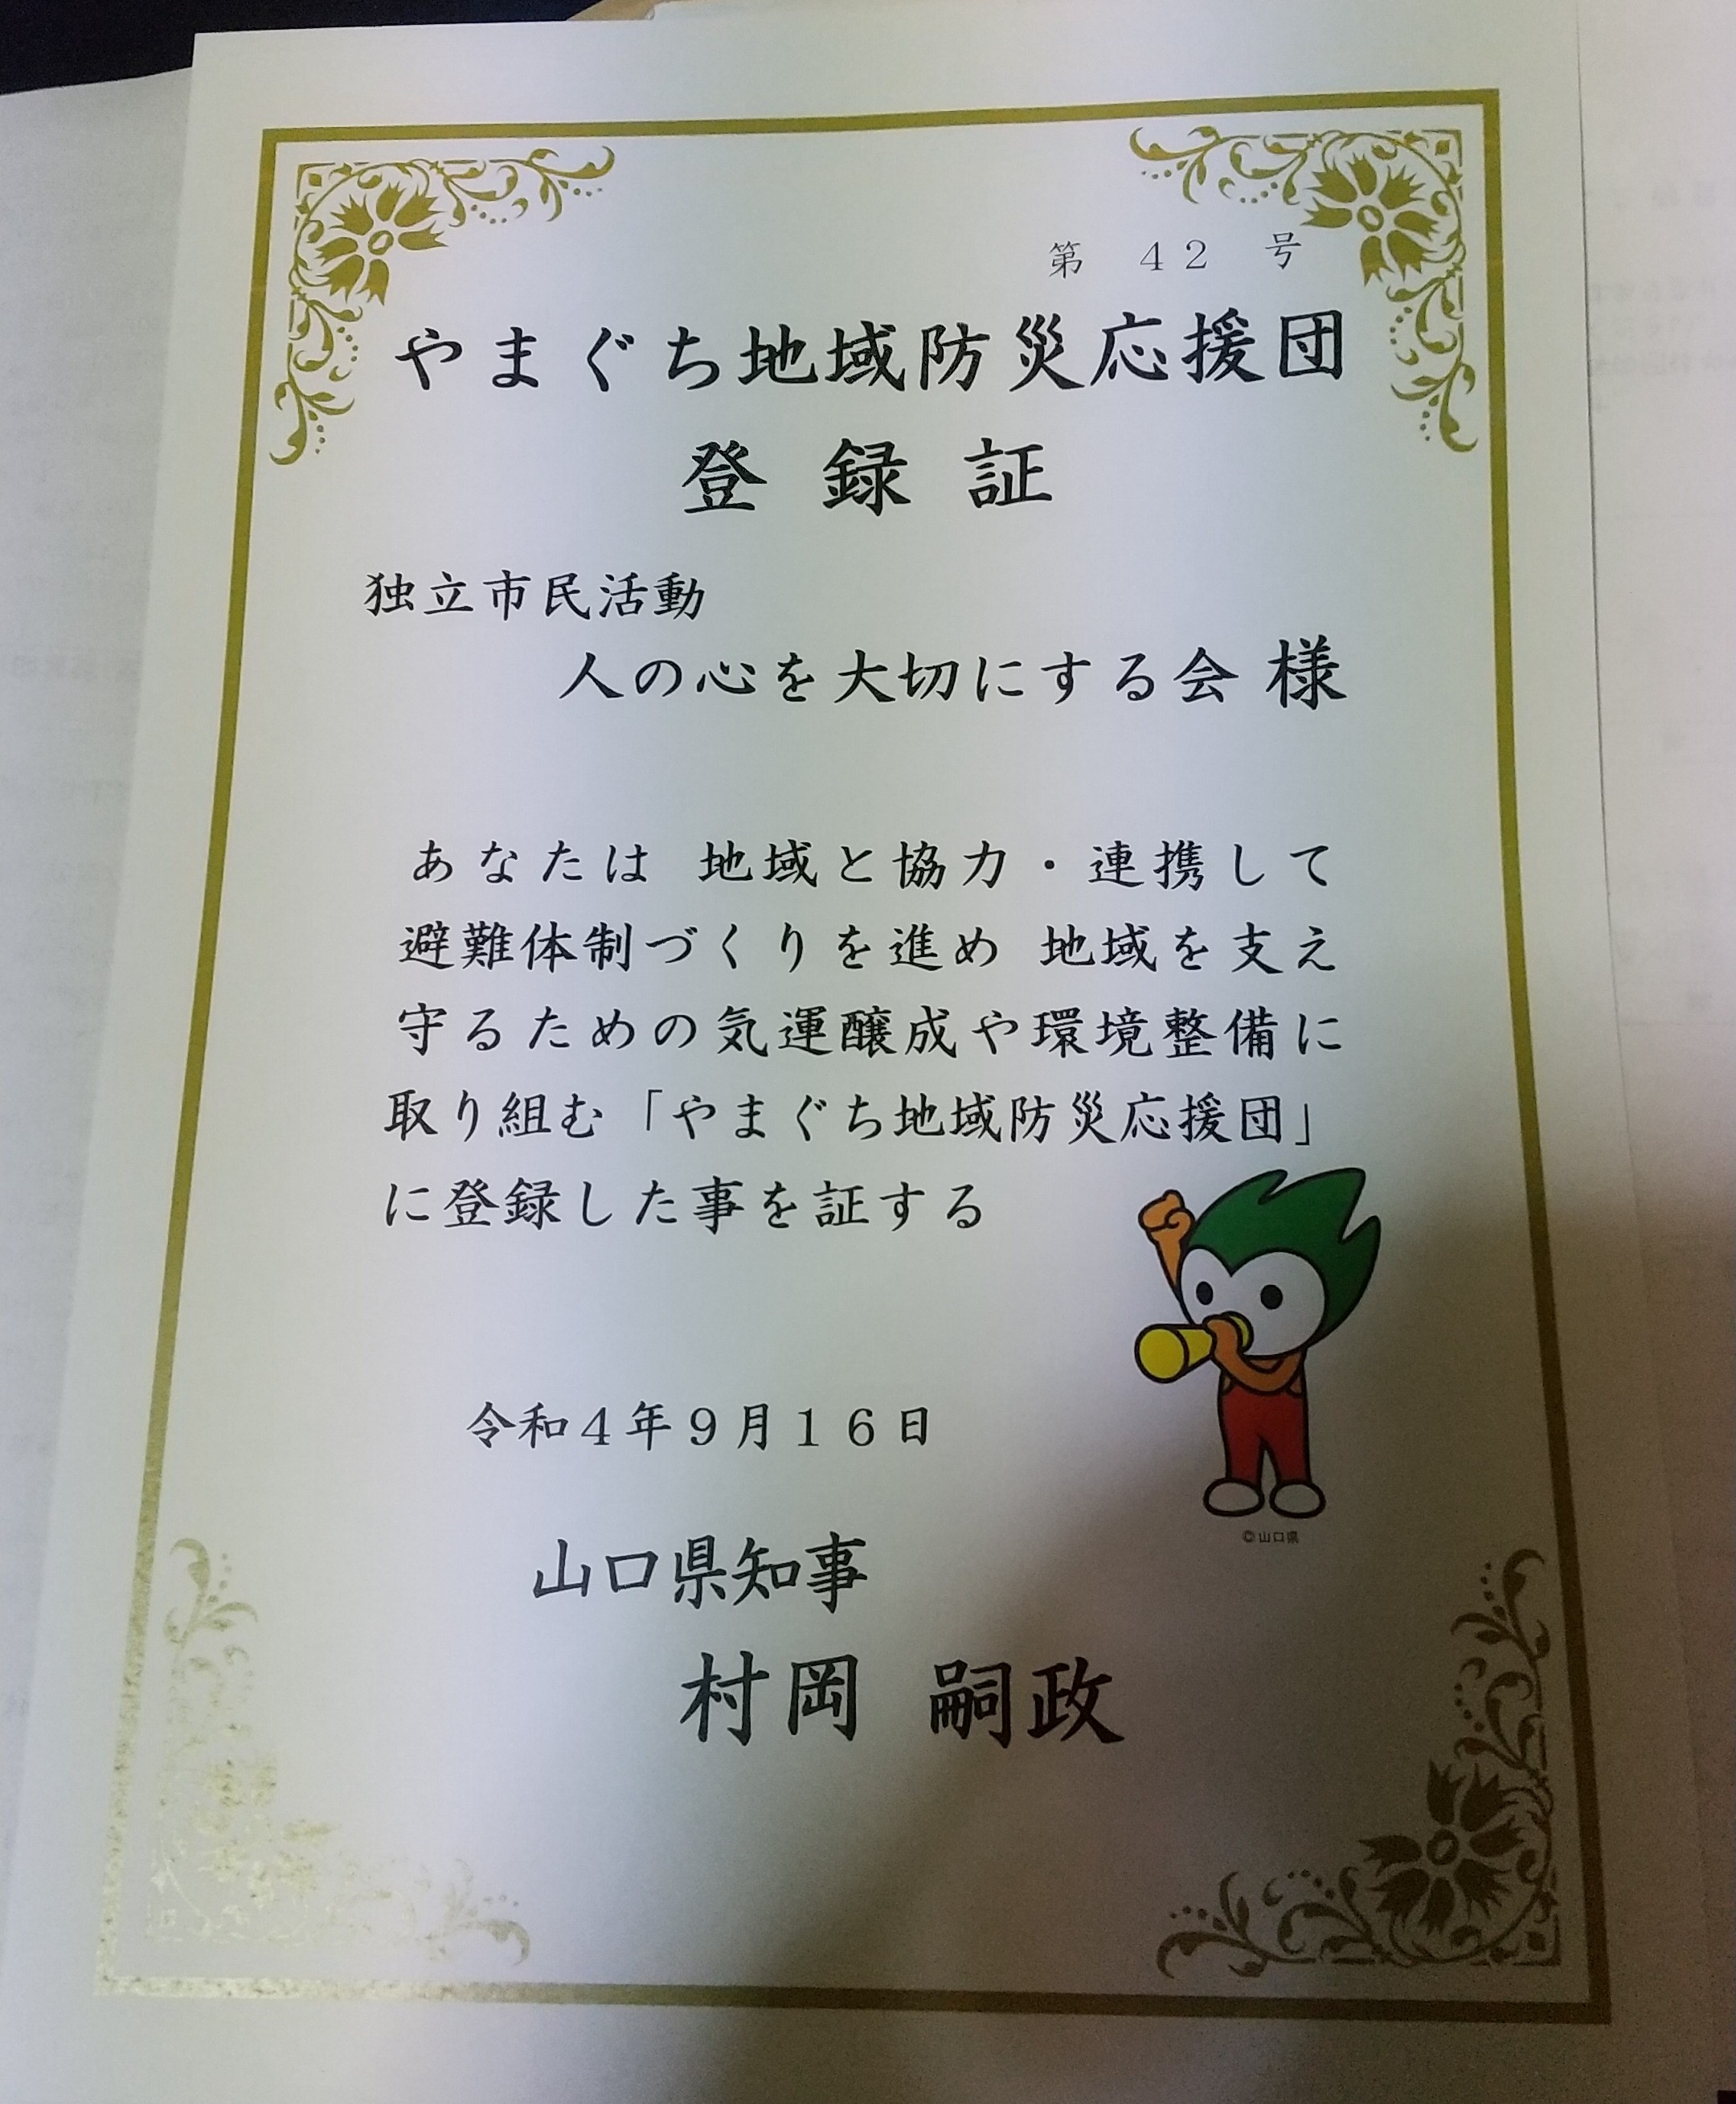 第 42 号
やまぐち地域防災応援団
登録証
独立市民活動
人の心を大切にする会 様
あなたは 地域と協力・連携して
避難体制づくりを進め 地域を支え
守るための気運醸成や環境整備に
取り組む「やまぐち地域防災応援団」
に登録した事を証する
令和4年9月16日
©山口県
山口県知事
村岡 嗣政